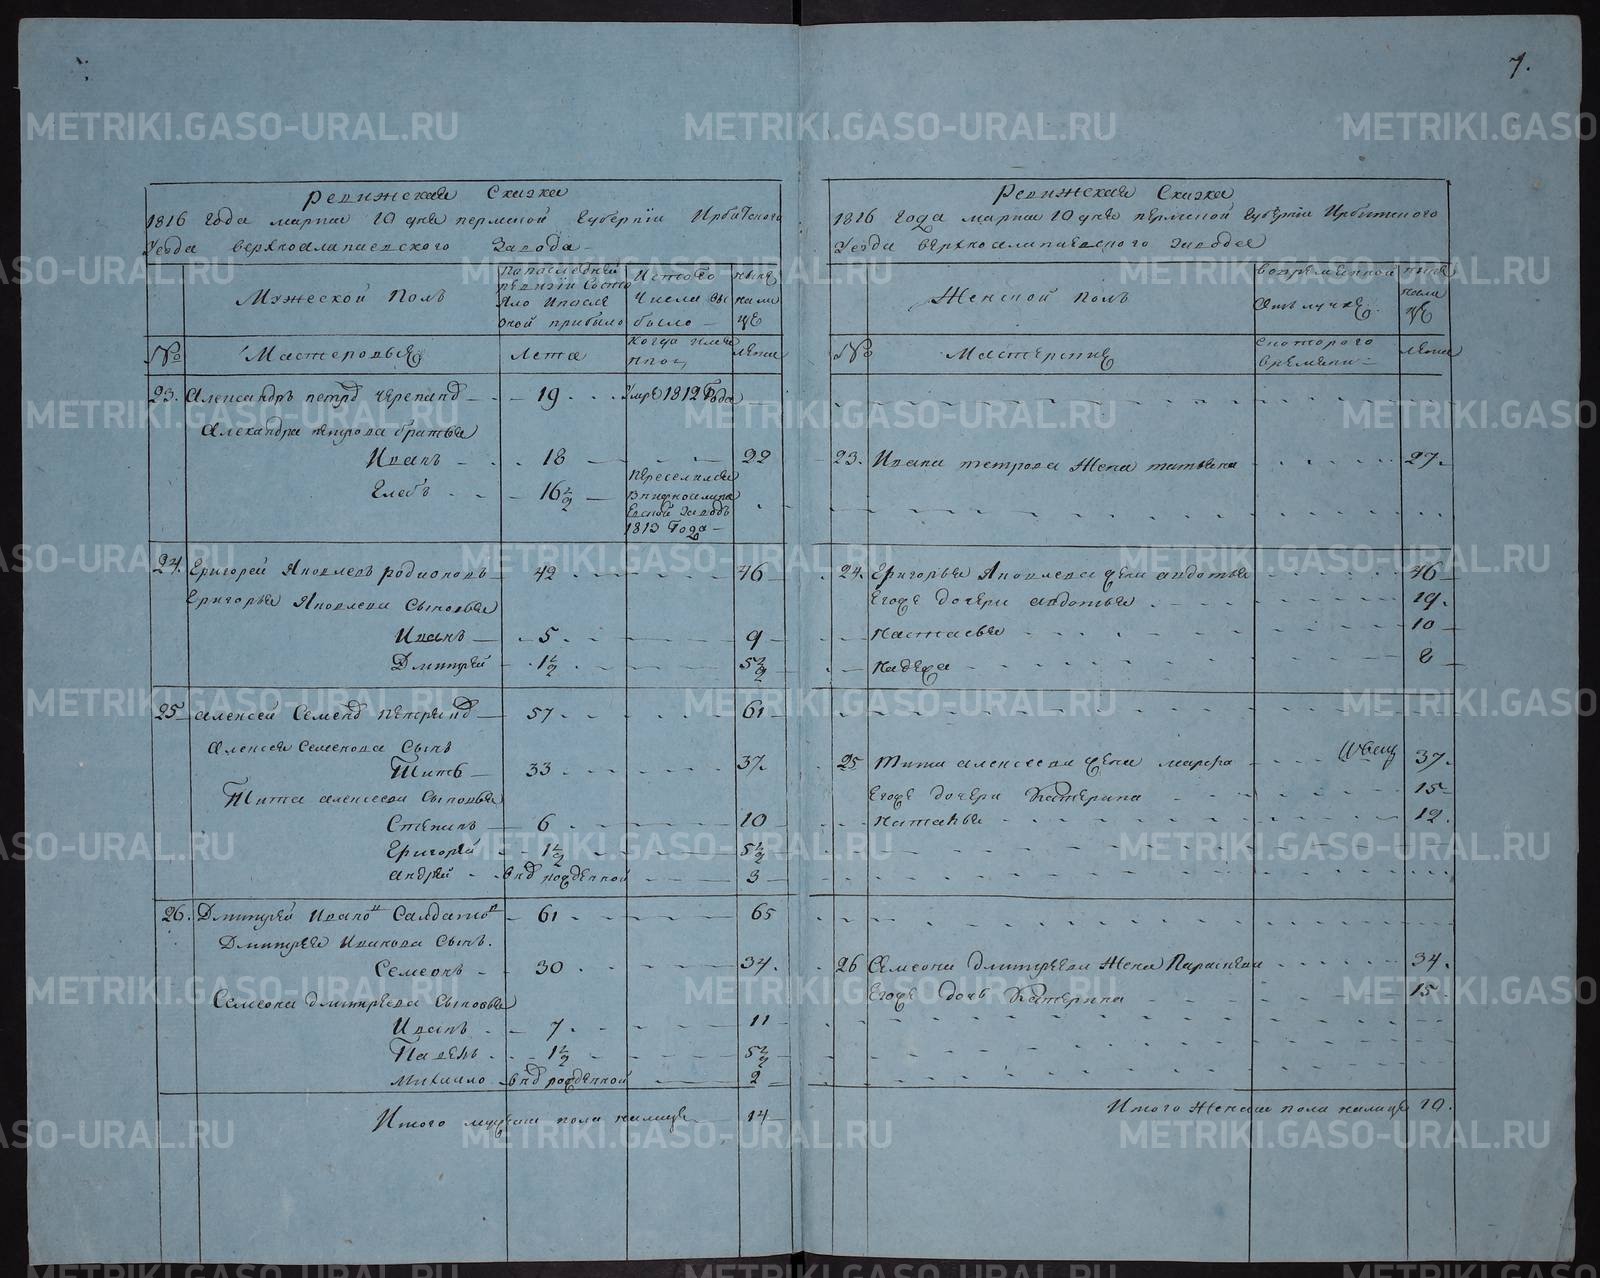 7.
Ревижская Сказка
1816 года марта 10 дня пермской Губернїи Ирбитского
Уезда верхоалапаевского Завода
Мужеской Полъ
Попоследней ревизїи Состояло Ипосле оной прибыло
Истого Числа выбыло
ныне налице
№
Мастеровые
Лета
Когда имянно
Лета
23. Александръ петровъ черепановъ 19 Умре 1812 Года
Александра петрова братья
Иванъ 18 22
Глебъ 16½ Переселился
внижнеалапа
евской заводъ
1813 Года
24. Григорей Яковлевъ родионовъ 42 46
Григорья Яковлева Сыновья
Иванъ 5 9
Дмитрей 1½ 5½
25 алексей Семеновъ 57 61
Алексея Семенова Сынъ
Титъ 33 37.
Тита алексеева Сыновья
Степанъ 6 10
Григорей 1½ 5½
андрей вновърожденной 3
26. Дмитрей Ивановъ Салдатовъ 61 65
Дмитрея Иванова Сынъ.
Семеонъ 30 34.
Семеона дмитреева Сыновья
Иванъ 7 11
Павелъ 1½ 5½
михаило вновърожденной 2
Итого мужска пола налице 14
Ревижская Сказка
1816 года марта 10 дня пермской Губернїи Ирбитского
Уезда верхоалапаевского завода
Женской полъ
вовременной отлучке
ныне налице
№
Мастерские
Скоторого времени
Лета
23. Ивана петрова Жена татьяна 27.
24. Григорья Яковлева жена авдотья 46
Егоже дочери авдотья 19.
настасья 10
надежа 8
25 Тита алексеева жена марфа 37.
Егоже дочери Катерина 15
наталья 12.
26 Семеона дмитреева Жена Парасковья 34.
Егоже дочь Катерина 15.
Итого Женска пола налице 10.
METRIKI.GASO-URAL.RU